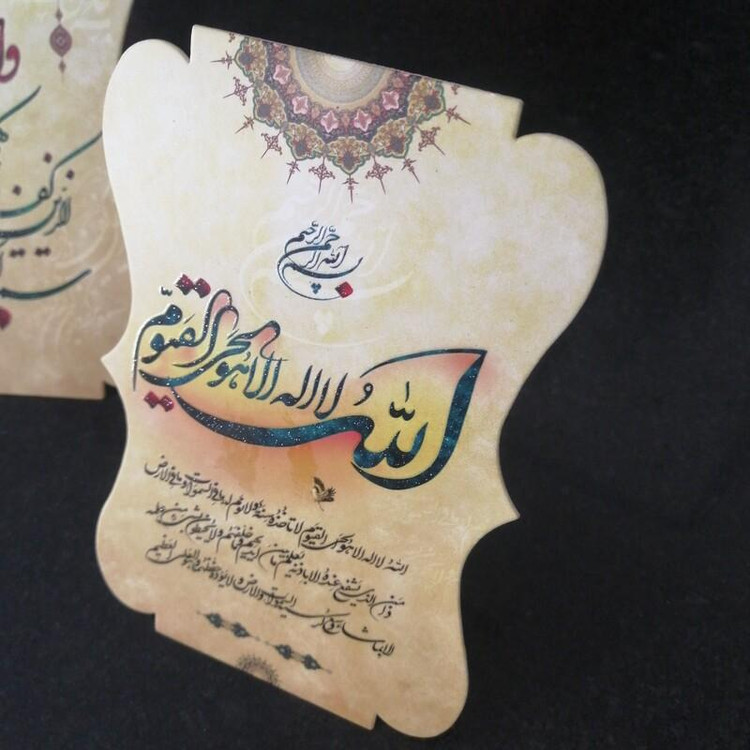 بسم الله الرحمن الرحیم
الله لا اله الا هو الحی القیوم
الله لا اله الا هو الحی القیوم لا تاخذه سنة ولا نوم له ما فی السموات و ما فی الارض
من ذا الذی یشفع عنده الا باذنه یعلم ما بین ایدیهم و ما خلفهم ولا یحیطون بشیء من علمه
الا بما شاء وسع کرسیه السموات والارض ولا یوده حفظهما و هو العلی العظیم